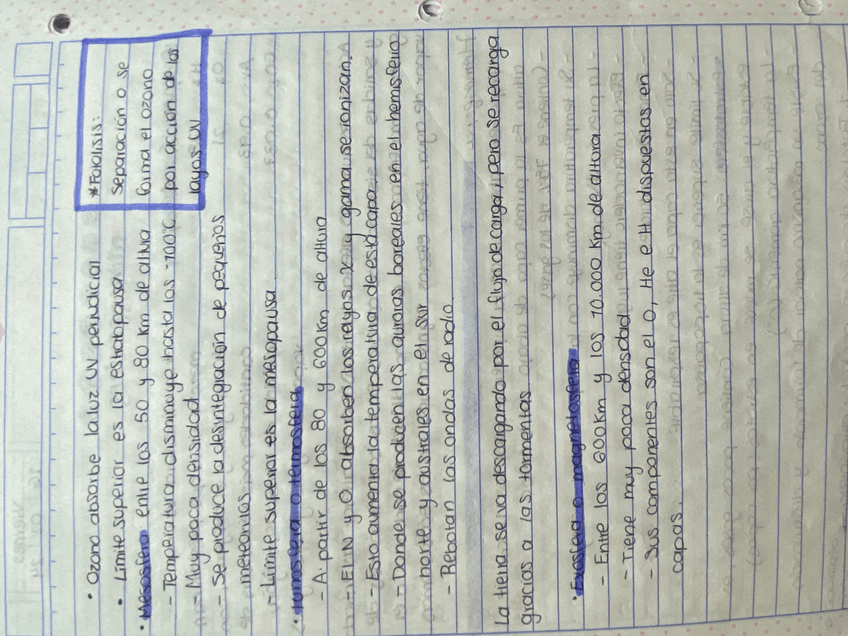 • Ozono absorbe la luz UV perjudicial
• Límite superior es la estratopausa
*Fotólisis:
Separación o se
forma el ozono
por acción de los
rayos UV
• Mesosfera entre los 50 y 80 km de altura
- Temperatura disminuye hasta los -100°C
- Muy poca densidad
- Se produce la desintegración de pequeños
meteoritos
- Límite superior es la mesopausa
• termosfera o ionosfera
- A partir de los 80 y 600km de altura
- El N y O absorben los rayos x y gama, se ionizan.
- Esto aumenta la temperatura de esta capa
- Donde se producen las auroras boreales en el hemisferio
norte y australes en el sur
- Rebotan las ondas de radio
La tierra se va descargando por el flujo de carga, pero se recarga
gracias a las tormentas
• Exosfera o magnetosfera
- Entre los 600km y los 10.000 km de altura
- Tiene muy poca densidad
- Sus componentes son el O, He e H dispuestas en
capas.